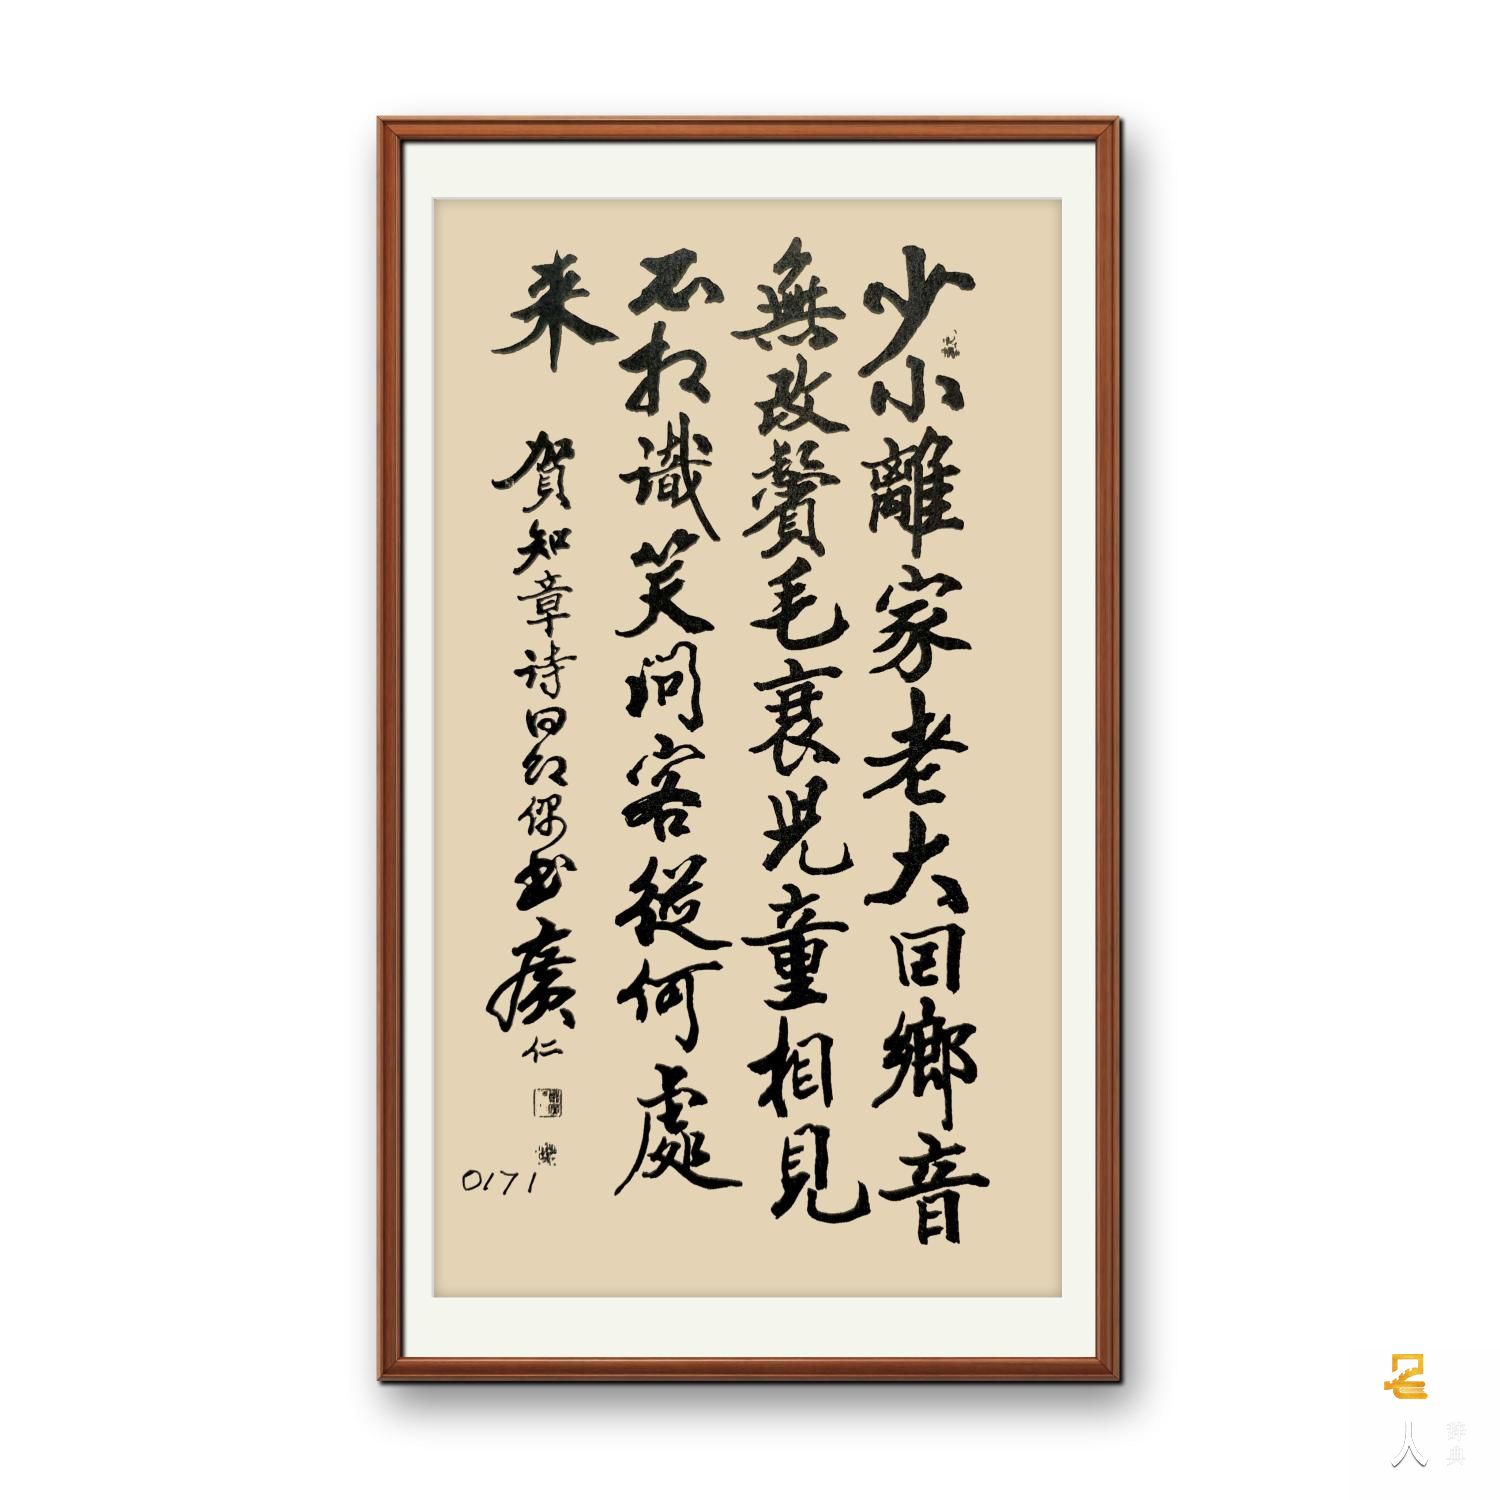 少小離家老大回鄉音
無改鬢毛衰兒童相見
不相識笑問客從何處
来 賀知章詩回乡偶书 廣仁
0171
人
辞典